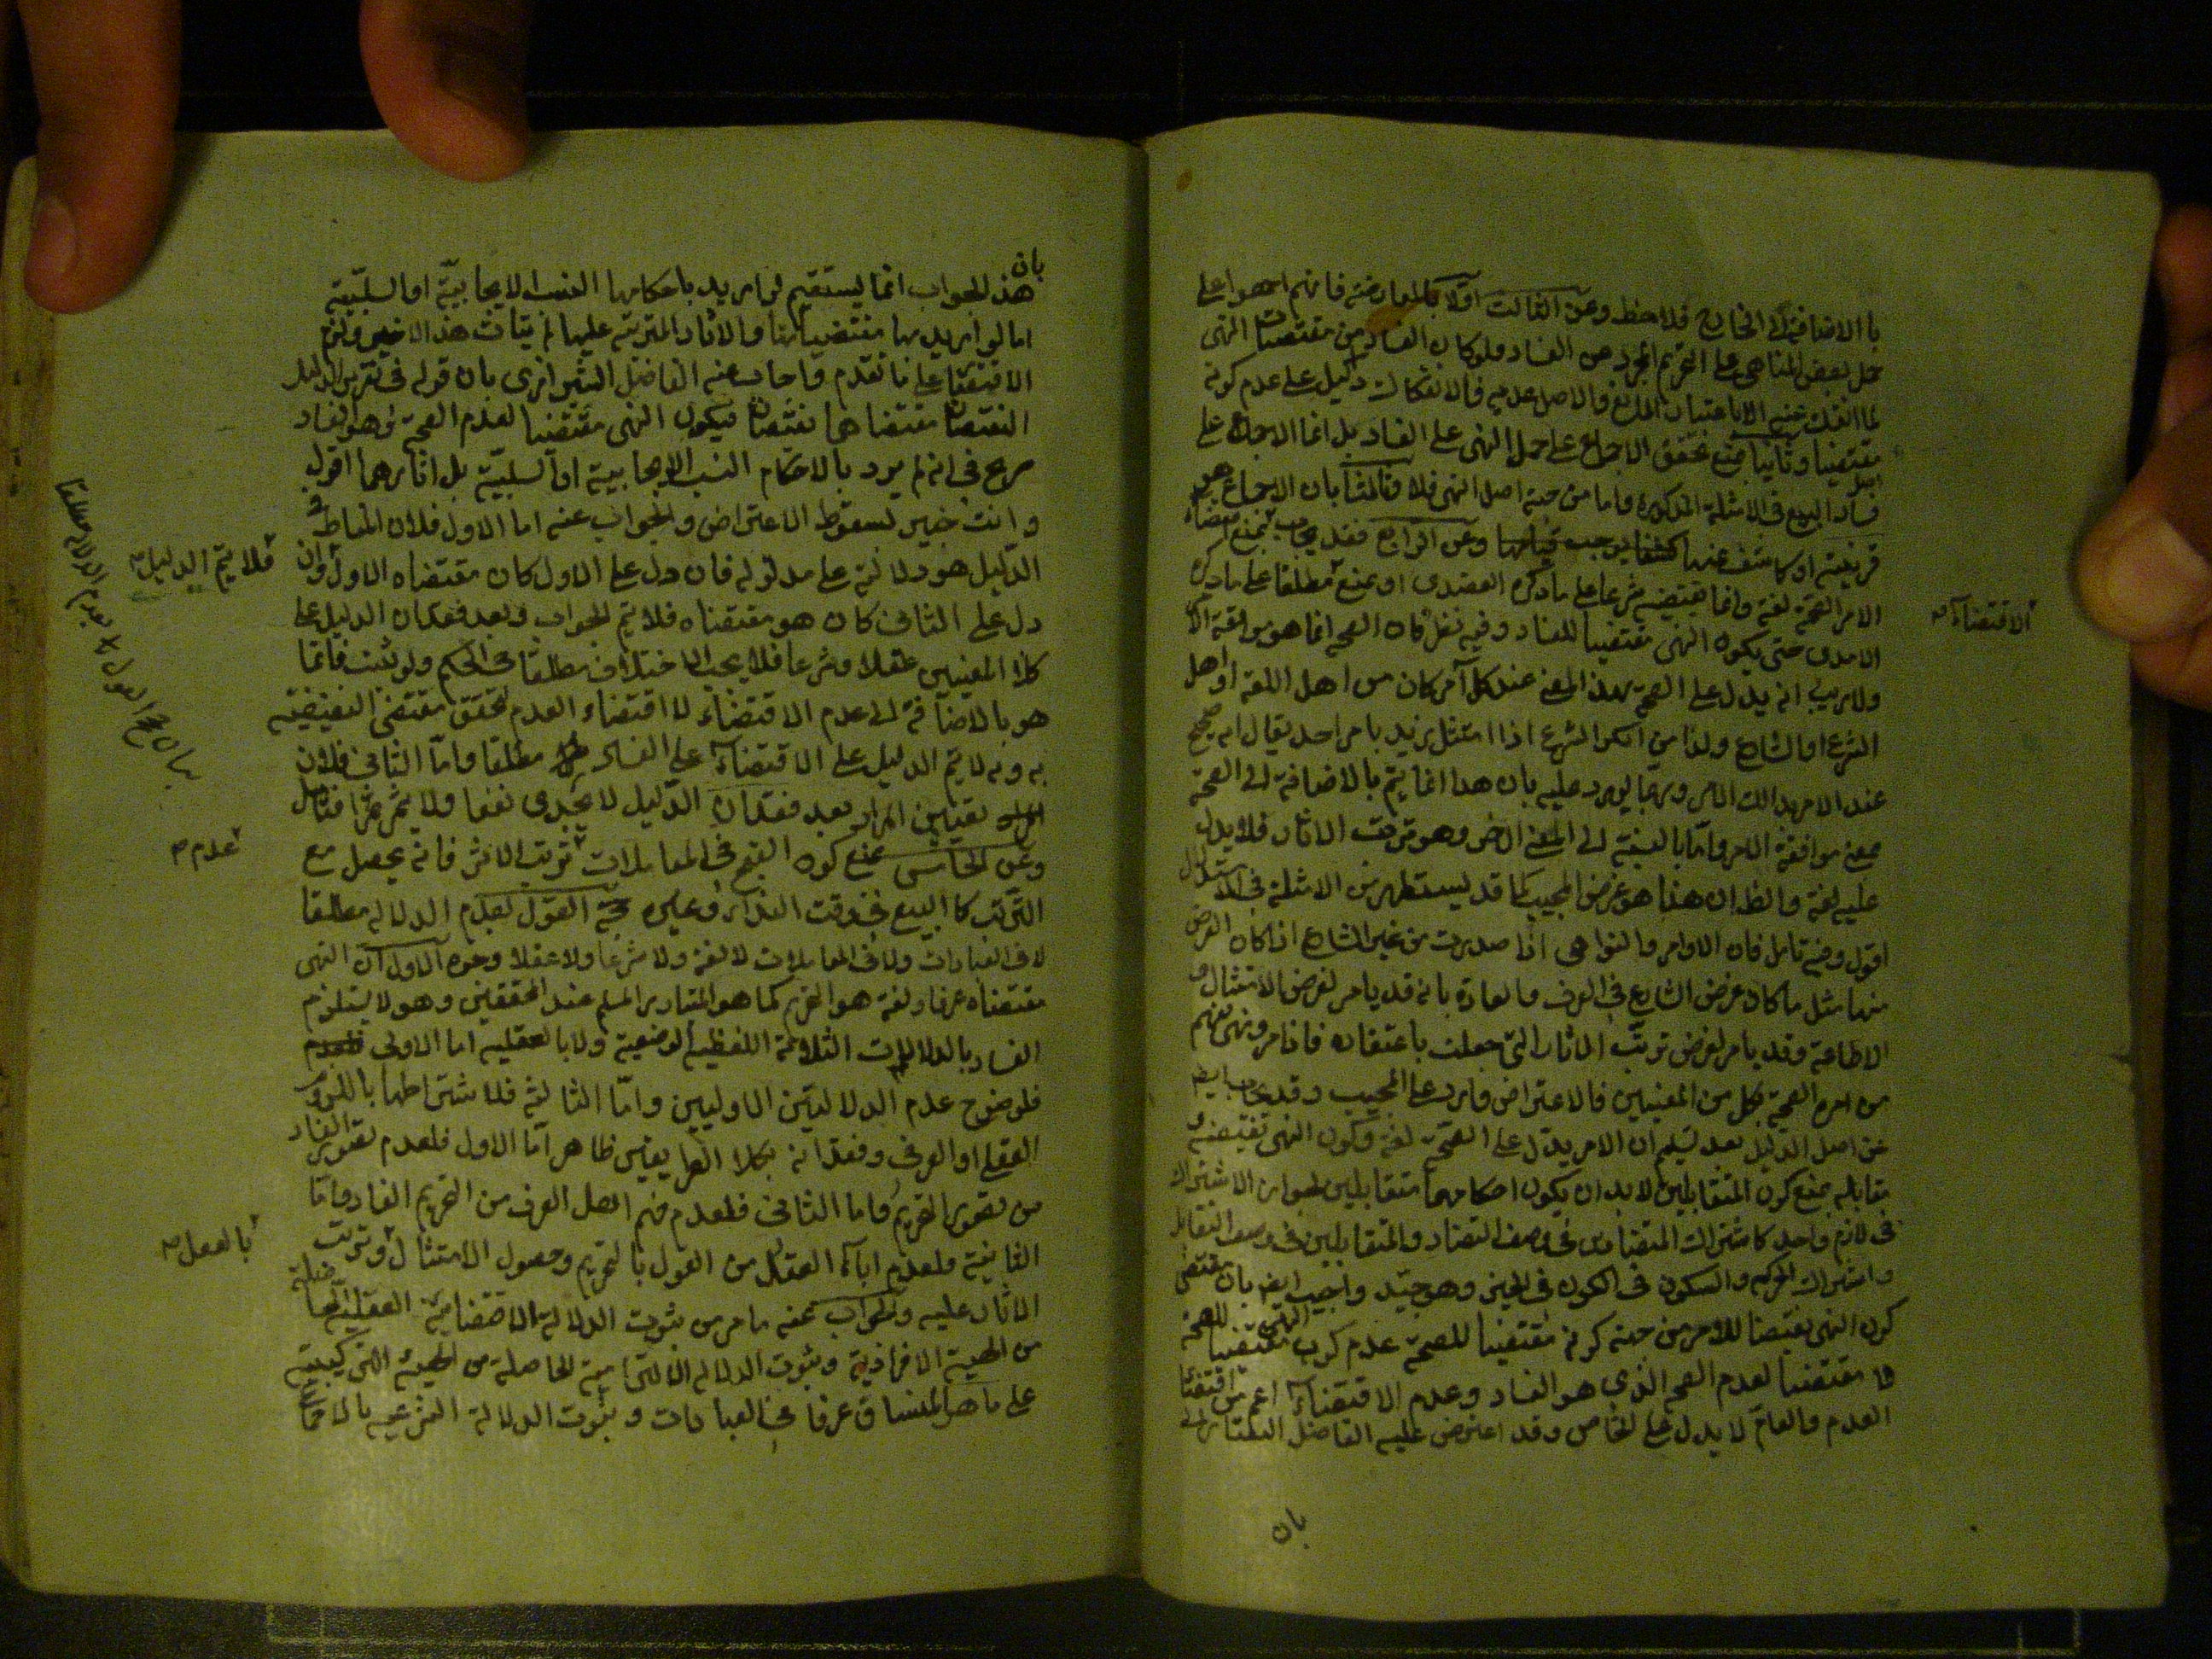 با الاضافة الى الخارج فلاحظ وعن الثالث اولا بالمعارضة فانهم اجمعوا على
حمل بعض المناهي على التحريم المجرد عن الفساد فلو كان الفساد من مقتضيات النهى
لما انفك عنه الا باعتبار المانع والاصل عدمه فالانفكاك دليل على عدم كونه
مقتضيا وثانيا بمنع تحقق الاجماع على حمل النهى على الفساد بل انما الاجماع على
فساد البيع فى الامثلة المذكورة واما من جهة اصل النهى فلا وثالثا بان الاجماع هو
قرينة او كاشف عنها وعن الرابع فقد يجاب بمنع اقتضاء
الامر الصحة لغة وانما تقتضيه شرعا على ما ذكره العضدى او بمنع مطلقا على ما ذكره
الامدى حتى يكون النهى مقتضيا للفساد وفيه نظر فان الصحة انما هو موافقة الامر
ولا ريب انه يدل على الصحة بهذا المعنى عند كل آمر كان من اهل اللغة او اهل
الشرع او الشارع ولذا من انكر الشرع اذا امتثل زيد بامر احد يقال انه صحيح
عند الامر بذالك الامر وربما يورد عليه بان هذا انما يتم بالاضافة الى الصحة
بمعنى موافقة الامر واما بالنسبة الى المعنى الاخر وهو ترتب الاثار فلا يدل
عليه لغة والظ ان هذا هو غرض المجيب كما قد يستظهر من الامثلة فى الاستدلال
اقول وفيه تامل فان الاوامر والنواهى اذا صدرت من غير الشارع اذا كان الغرض
منها مثل ما كان غرض الشارع فى العرف والعادة بانه قد يامر لغرض الامتثال و
الاطاعة وقد يامر لغرض ترتب الاثار التى جعلت باعتقاده فاذا امر ونهى يفهم
من امره الصحة بكل من المعنيين فالاعتراض وارد على المجيب وقد يجاب ايضا
عن اصل الدليل بعد تسليم ان الامر يدل على الصحة لغة وكون النهى نقيضه
مقابله بمنع كون المتقابلين لابد ان يكون احكامهما متقابلين لجواز الاشتراك
فى لازم واحد كاشتراك المتضادين فى وصف التضاد والمتقابلين فى وصف التقابل
واشتراك الحركه والسكون فى الكون فى الحيز وهو جيّد واجيب ايض بان مقتضى
كون النهى نقيضا للامر من جهة كونه مقتضيا للصحة عدم كون النهى مقتضيا للصحة
لا مقتضيا لعدم الصحه الذى هو الفساد وعدم الاقتضاء اعم من اقتضاء
العدم والعام لا يدل على الخاص وقد اعترض عليه الفاضل التفتازانى
بان
الاقتضاء
بان
هذا الجواب انما يستقيم لو اريد باحكامها النسب الايجابيّة او السلبيّة
اما لو اريد بها مقتضياتها والاثار المترتبة عليها لم يتات هذا الاخير ولزم
الاقتضاء على ما تقدم واجاب عنه الفاضل الشيرازى بان قوله فى تقرير الدليل
النقيضان مقتضاهما نقيضان فيكون النهى مقتضيا لعدم الصحة وهو الفساد
صريح فى انه لم يرد بالاحكام النسب الايجابية او السلبيّة بل اثارهما اقول
وانت خبير بسقوط الاعتراض والجواب عنه اما الاول فلان المناط فى
الدليل هو دلالته على مدلوله فان دل على الاول كان مقتضاه الاول وان
دل على الثانى كان هو مقتضاه فلا يتم الجواب وبعد فقدان الدليل على
كلا المعنيين عقلا وشرعا فلا يجب الاختلاف مطلقا فى الحكم ولو ثبت فانما
هو بالاضافة الى عدم الاقتضاء لا اقتضاء العدم لتحقق مقتضى النقيضية
بدونه لا يتم الدليل على الاقتضاء على الفساد مطلقا واما الثانى فلان
تعيين المراد بعد فقدان الدليل لا يجدى نفعا ولا يثمر ثمرا فتامل
وعن الخامس بمنع كون القبح فى المعاملات ترتب الاثر فانه يحصل مع
الترتب كالبيع فى وقت النداء وغيره حجة القول بعدم الدلاله مطلقا
لا فى العبادات ولا فى المعاملات لا لغة ولا شرعا ولا عقلا وجوه الاول ان النهى
مقتضاه عرفا ولغة هو التحريم كما هو المتبادر المسلم عند المحققين وهو لا يستلزم
الفساد بالدلالات الثلاثة اللفظية الوضعية ولا بالعقليه اما الاولى
فلوضوح عدم الدلالتين الاوليين واما الثالثة فلاشتراطها باللزوم
العقلى او العرفى وفقدانه بكلا الطريقين ظاهر اما الاول فلعدم تصور الفساد
من تصور التحريم واما الثانى فلعدم فهم اهل العرف من التحريم الفساد واما
الثانية فلعدم اباء العقل من القول بالتحريم وحصول الامتثال وترتب
الاثار عليه والجواب عنه ما مر من ثبوت الدلالة الاقتضائية العقلية الحاصلة
من الهيئة الافرادية وثبوت الدلاله الالتزامية الحاصلة من الهيئة التركيبية
على ما هو المنساق عرفا فى العبادات وثبوت الدلالة الشرعيه بالاجماع
فلا يتم الدليل
بيان حجج القول بعدم الدلالة مطلقا
عدم
بالفعل